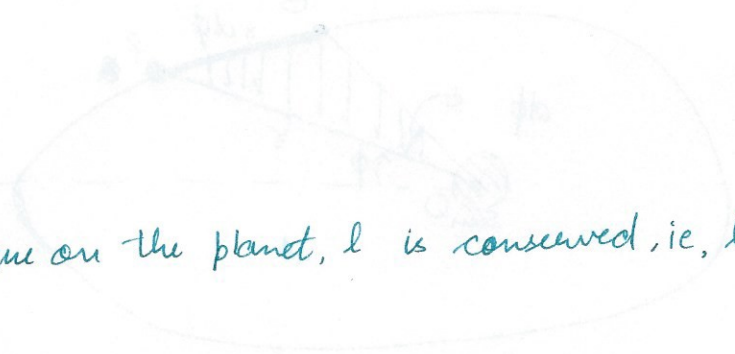 on the planet, l is conserved, ie,